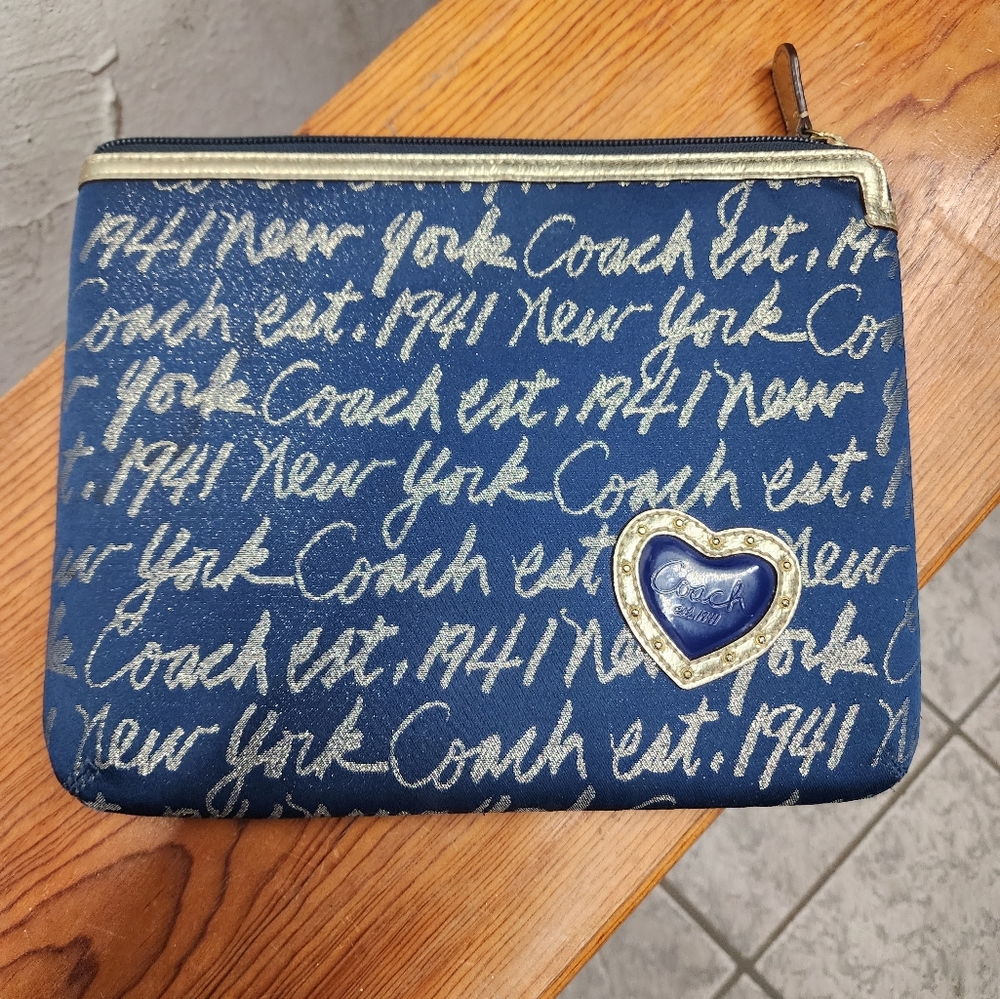 1941 New York Coach est. 194
Coach est. 1941 New York Co
York Coach est. 1941 New y
t. 1941 New York Coach est. 1
ew York Coach est New
Coach
est. 1941
k Coach est. 1941 New York C
New York Coach est. 1941 N